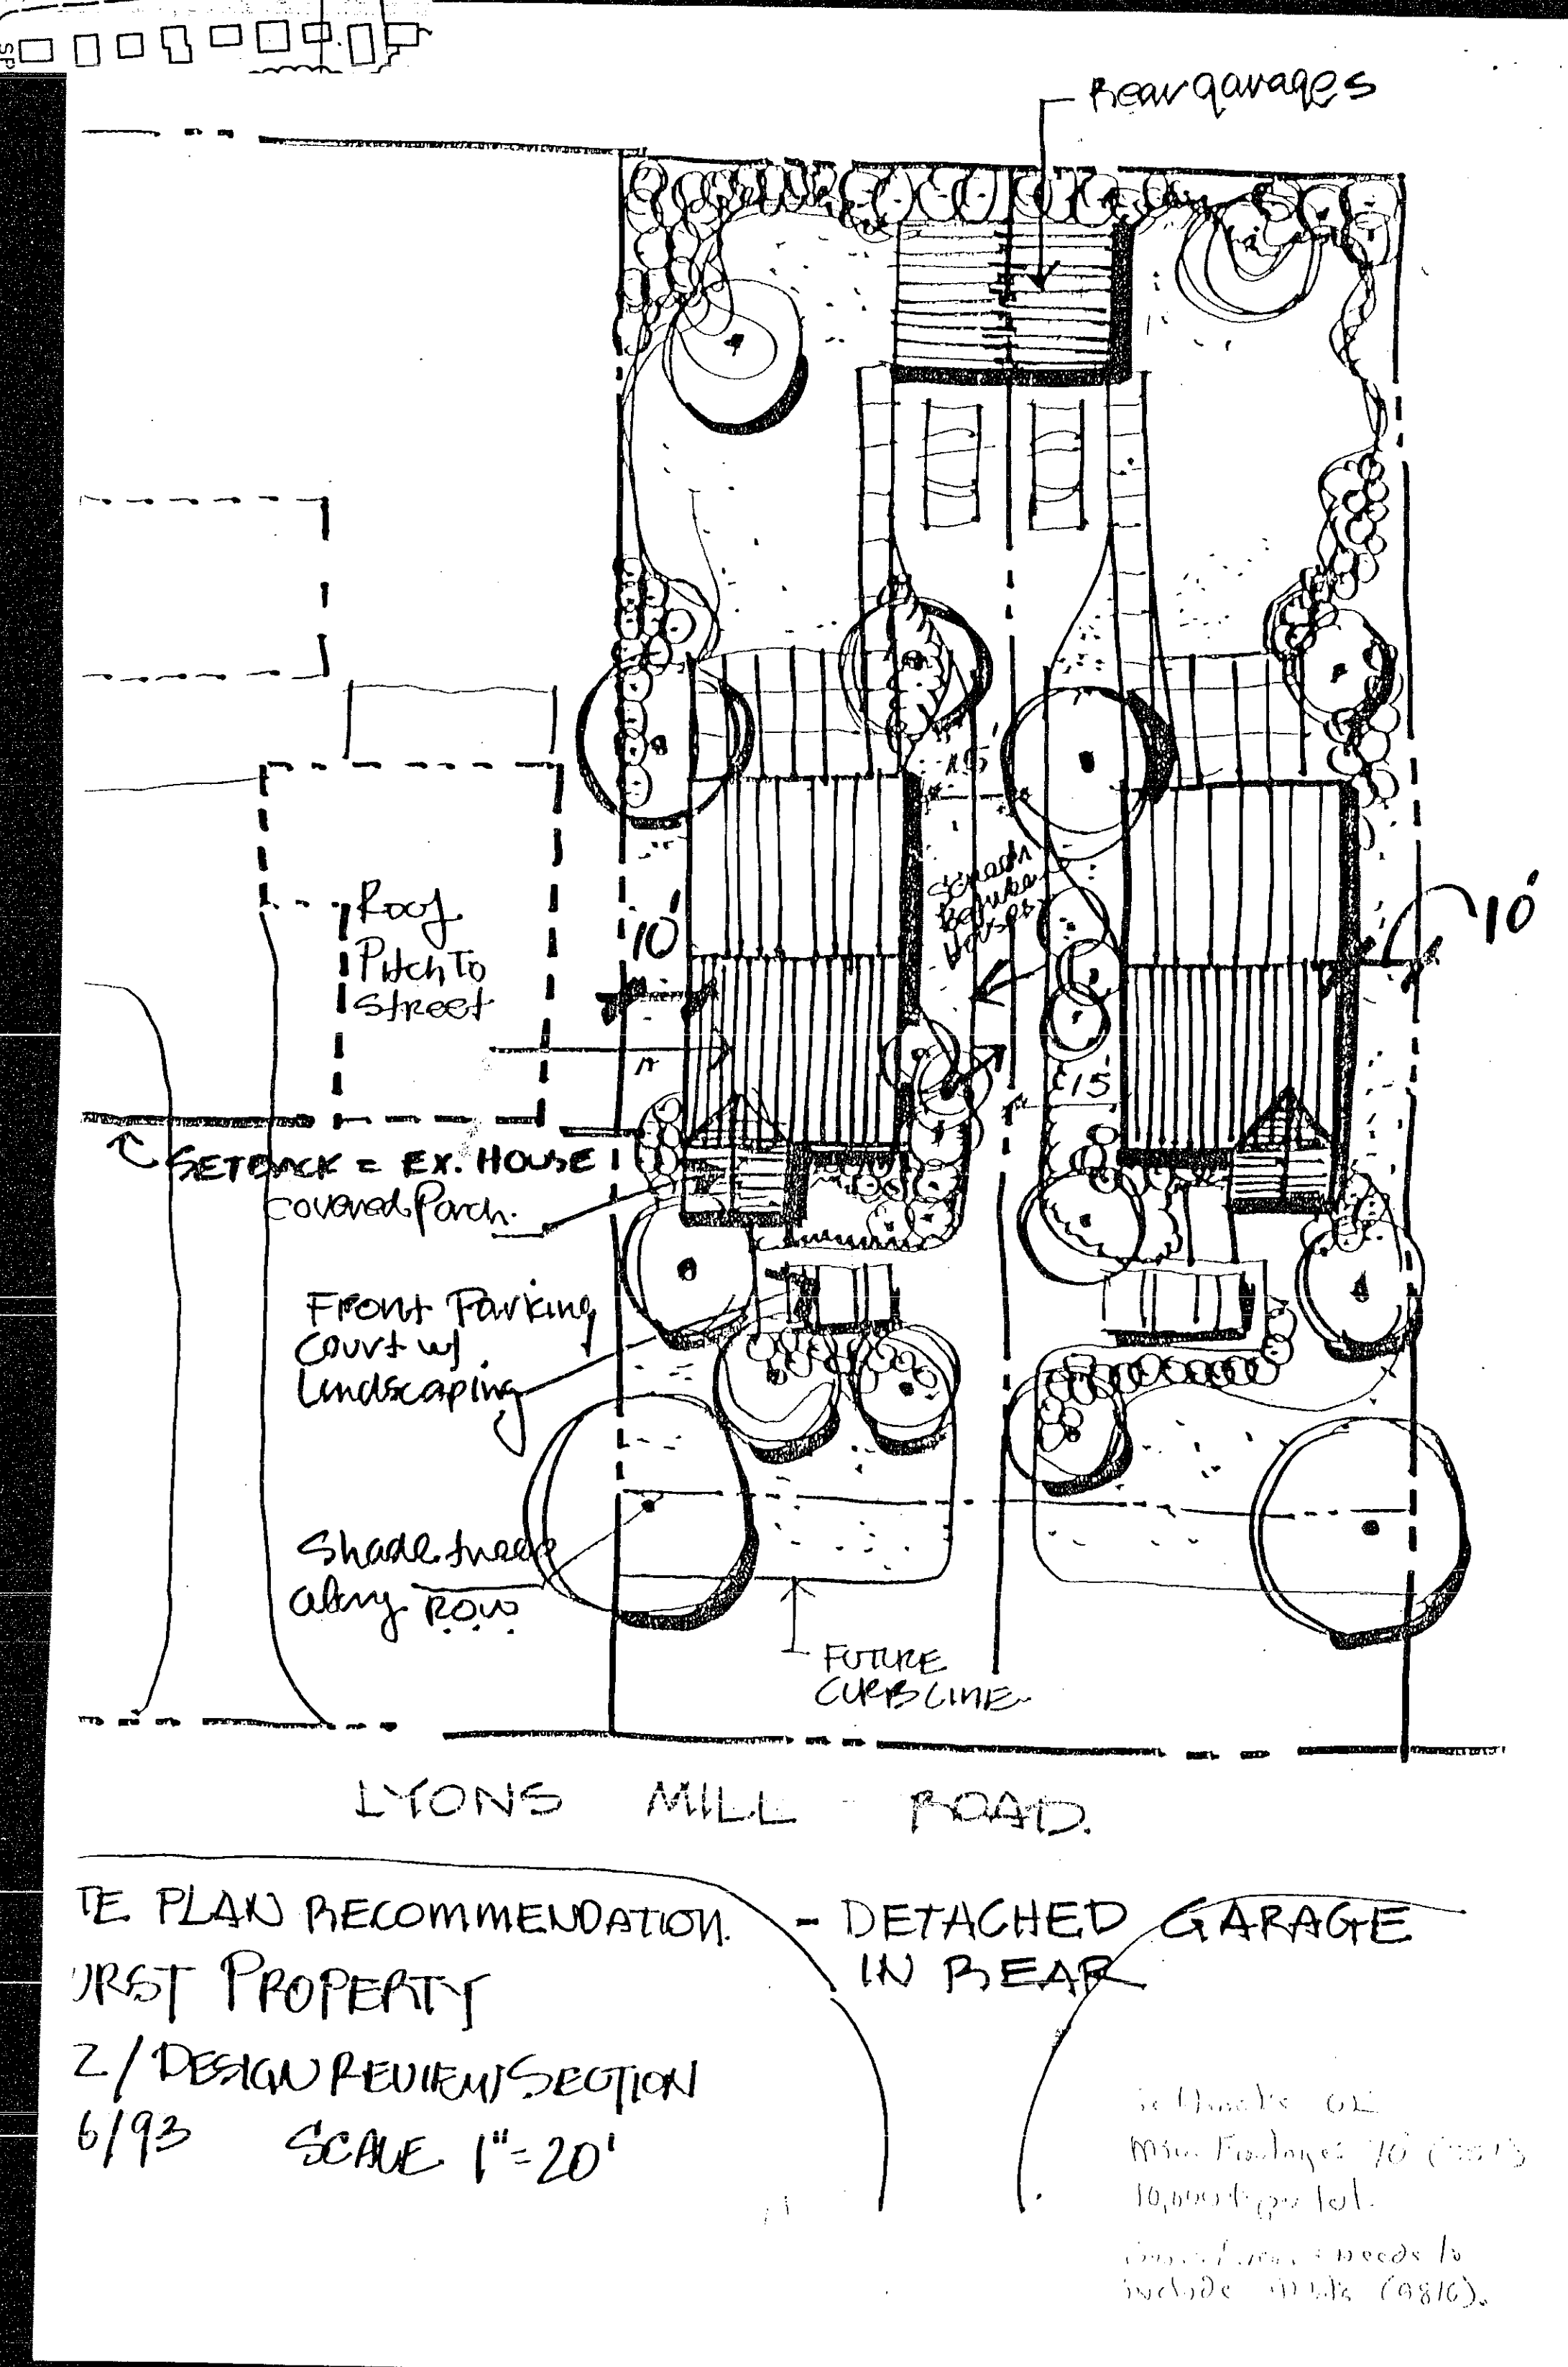 SP
Rear garages
15'
Screen
Between
Houses
Roof
Pitch To
Street
10'
10'
15'
SETBACK = EX. HOUSE
Covered Porch.
Front Parking
Court w/
Landscaping
Shade trees
along ROW
FUTURE
CURBLINE
LYONS MILL ROAD.
TE PLAN RECOMMENDATION. - DETACHED GARAGE
IN REAR
URST PROPERTY
Z / DESIGN REVIEW SECTION
6/93 SCALE 1"=20'
Setbacks OK
10,000 per lot.
needs to
include